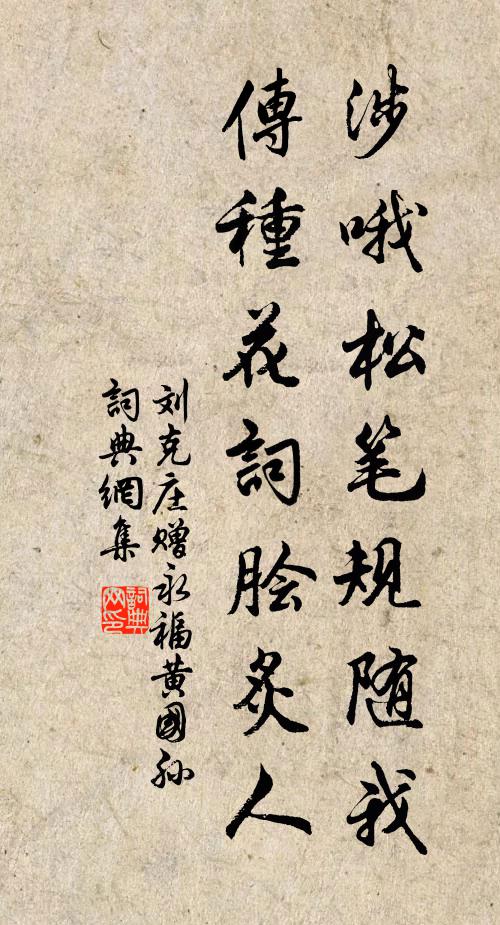 涉哦松笔规随我
傳種花詞脍炙人
刘克庄赠永福黄國孙
詞典網集
詞典
网印